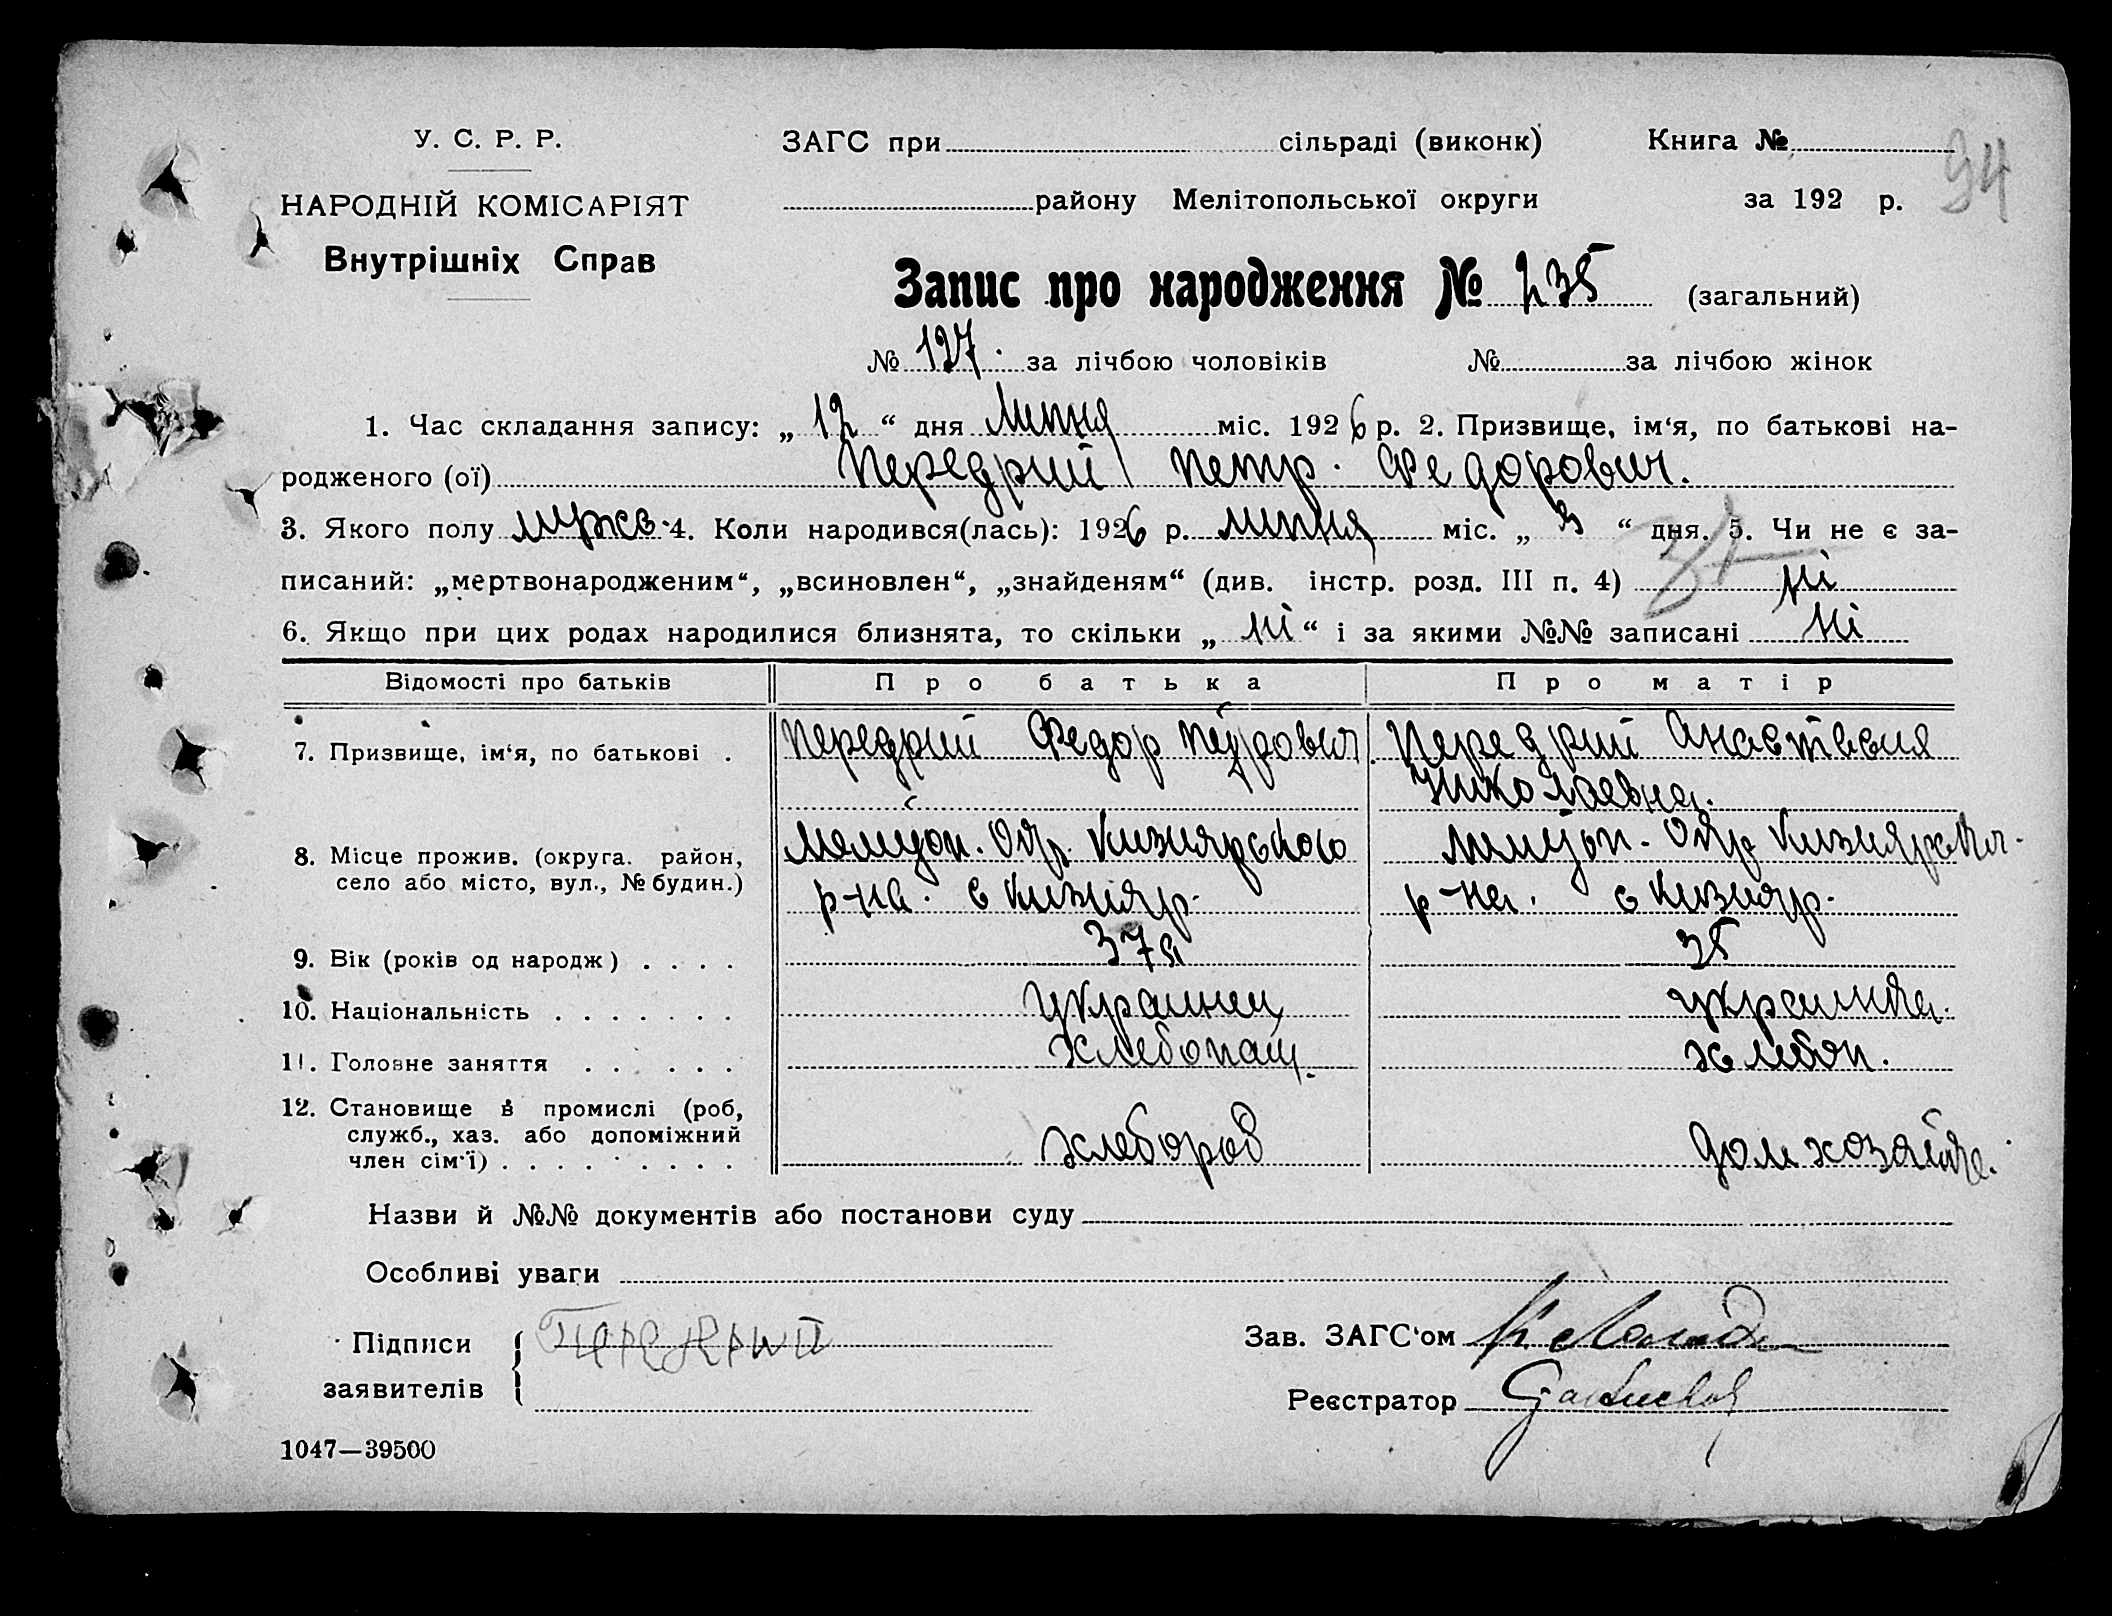 У. С. Р. Р.
НАРОДНІЙ КОМІСАРІЯТ
Внутрішніх Справ
ЗАГС при сільраді (виконк) Книга №
94
району Мелітопольської округи за 192 р.
Запис про народження № 235 (загальний)
№ 127. за лічбою чоловіків № за лічбою жінок
1. Час складання запису: „ 12 “ дня липня міс. 1926 р. 2. Призвище, ім‘я, по батькові на-
родженого (ої) Передрий Петр. Федорович.
3. Якого полу мужс. 4. Коли народився(лась): 1926 р. липня міс. „ 3 “ дня. 5. Чи не є за-
писаний: „мертвонародженим“, „всиновлен“, „знайденям“ (див. інстр. розд. III п. 4) ні
6. Якщо при цих родах народилися близнята, то скільки „ ні “ і за якими №№ записані ні
Відомості про батьків Про батька Про матір
7. Призвище, ім‘я, по батькові . Передрий Федор Петрович Передрий Анастасия
Николаевна.
8. Місце прожив. (округа. район, Мелитоп. Окр. Кизиярского Мелитоп. Окр Кизиярск
село або місто, вул., № будин.) р-на. с Кизияр. р-на. с Кизияр.
9. Вік (років од народж) . . . . 37 35
10. Національність . . . . . . . украинец украинка.
11. Головне заняття . . . . . . хлебопащ. хлебоп.
12. Становище в промислі (роб,
служб., хаз. або допоміжний хлебороб дом хозяйка.
член сім‘ї) . . . . . . . . .
Назви й №№ документів або постанови суду
Особливі уваги
Підписи
заявителів
Зав. ЗАГС‘ом
Реєстратор
1047—39500